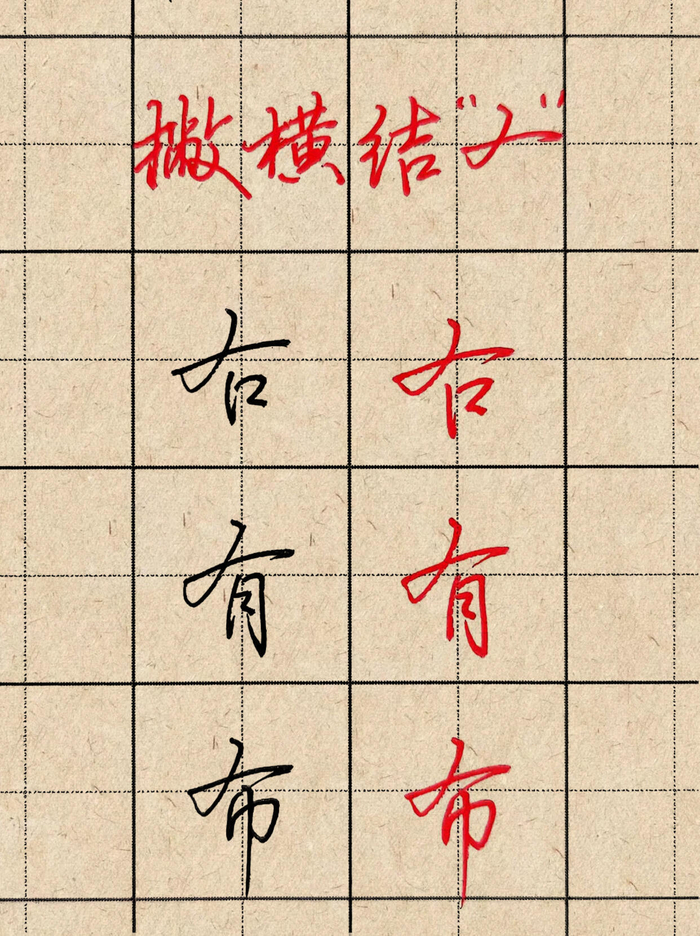 撇横结"𠂇"
右 右
有 有
布 布